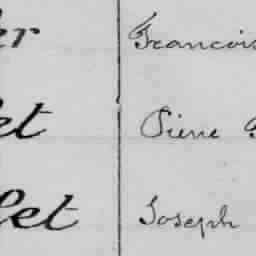 er Francois
et Pierre
let Joseph